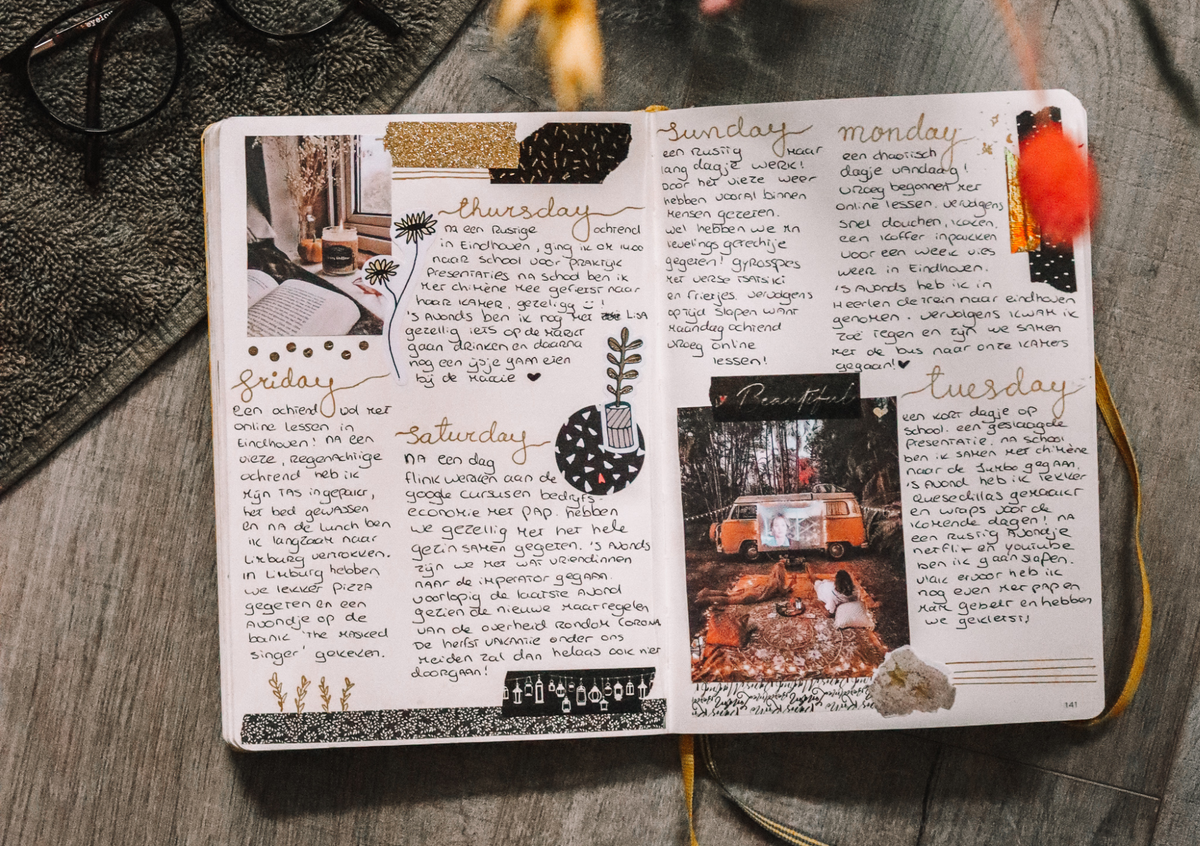 thursday
NA een Rustige ochtend
in Eindhoven, ging ik om
naar school voor praktijk
presentaties na school ben ik
met chimène mee gefietst naar
haar KAMER, gezellig !
's avonds ben ik nog met LISA
gezellig iets op de markt
gaan drinken en daarna
nog een ijsje gam een
bij de Maaie ♥
friday
een ochtend vol met
online lessen in
Eindhoven! NA een
vieze, regenachtige
ochtend heb ik
mijn TAS ingepakt,
het bed gewassen
en NA de lunch ben
ik langzaam naar
Limburg vertrokken.
in Limburg hebben
we lekker pizza
gegeten en een
Avondje op de
bank 'the masked
singer' gekeken.
saturday
NA een dag
flink werken aan de
google cursussen bedrijfs-
economie met pap. hebben
we gezellig met het hele
gezin samen gegeten. 's Avonds
zijn we met wat vriendinnen
naar de imperator gegaan.
voorlopig de laatste avond
gezien de nieuwe maatregelen
van de overheid rondom corona
De herfst vakantie onder ons
meiden zal dan helaas ook niet
doorgaan!
sunday
een rustig maar
lang dagje werk!
Door het vieze weer
hebben vooral binnen
mensen gezeten.
wel hebben we mn
lievelings gerechtje
gegeten! gyrosspes
met verse tsatsiki
en frietjes. vervolgens
optijd slapen want
maandag ochtend
vroeg online
lessen!
monday
een chaotisch
dagje vandaag!
vroeg begonnen met
online lessen. vervolgens
snel douchen, koken.
een koffer inpakken
voor een week vies
weer in Eindhoven.
's Avonds heb ik in
Heerlen de trein naar eindhoven
genomen. vervolgens kwam ik
zoë tegen en zijn we samen
met de bus naar onze kamers
gegaan! ♥
Beautiful
tuesday
een kort dagje op
school. een geslaagde
presentatie. na school
ben ik samen met chimène
naar de Jumbo gegaan.
's Avond heb ik lekker
Quesedillas gemaakt
en wraps voor de
komende dagen! NA
een rustig avondje
netflix en youtube
ben ik gaan slapen.
vlak ervoor heb ik
nog even met pap en
mam gebelt en hebben
we gekletst!
141